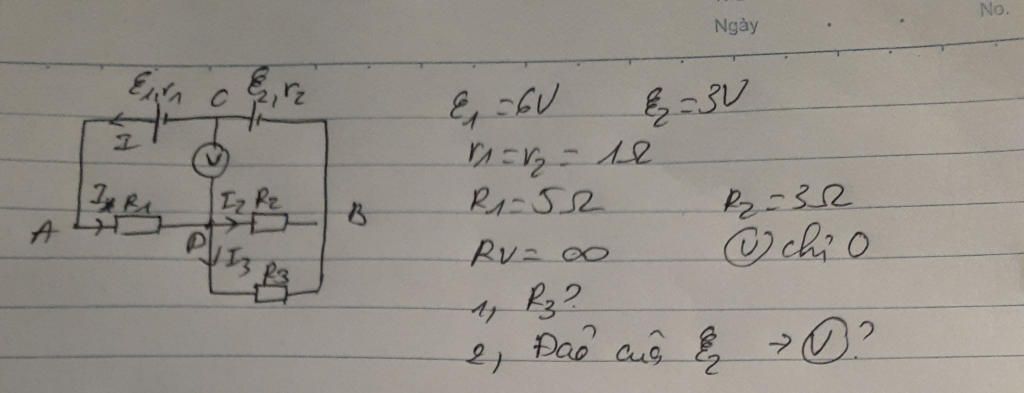 Ngày
No.
ℰ1,r1 C ℰ2,r2
I
V
I R1 I2 R2
A D B
I3 R3
ℰ1 = 6V ℰ2 = 3V
r1 = r2 = 1Ω
R1 = 5Ω R2 = 3Ω
RV = ∞ Ⓥ chỉ 0
1, R3?
2, Đảo cực ℰ2 → Ⓥ?